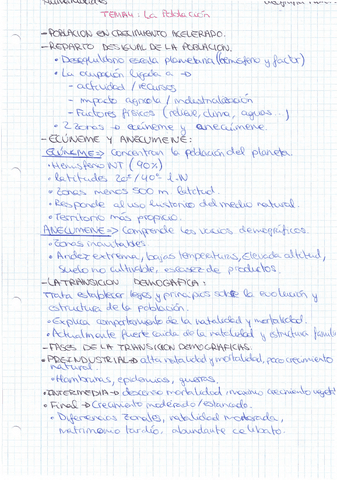 TEMA 4: La Población
-POBLACION EN CRECIMIENTO ACELERADO.
-REPARTO DESIGUAL DE LA POBLACION.
• Desequilibrio escala planetaria (hemisferio y factor)
• La ocupación ligada a →
- actividad / recursos
- impacto agrícola / industrialización
- Factores físicos (relieve, clima, aguas...)
• 2 zonas → ecúmeme y anecúmeme.
-ECÚNEME Y ANECUMENE:
ECÚNEME => concentran la población del planeta.
• Hemisferio NT (90%)
• Latitudes 20º/40º L.N
• Zonas menos 500 m. latitud.
• Responde al uso historico del medio natural.
• Territorio más propicio.
ANECUMENE => Comprende los vacios demográficos.
• Zonas inhabitables.
• Aridez extrema, bajas temperaturas, Elevada altitud,
Suelo no cultivable, escasez de productos.
-LA TRANSICION DEMOGRAFICA:
Trata establecer leyes y principios sobre la evolución y
estructura de la población.
• Explica comportamiento de la natalidad y mortalidad.
• Actualmente fuerte caida de la natalidad y estructura
-FASES DE LA TRANSICION DEMOGRAFICAS.
• PREINDUSTRIAL → alta natalidad y mortalidad, poco crecimiento
natural.
• Hambrunas, epidemias, guerras.
• INTERMEDIA → descenso mortalidad, maximo crecimiento
• Final → Crecimiento moderado/estancado.
• Diferencias zonales, natalidad moderada,
matrimonio tardío, abundante celibato.